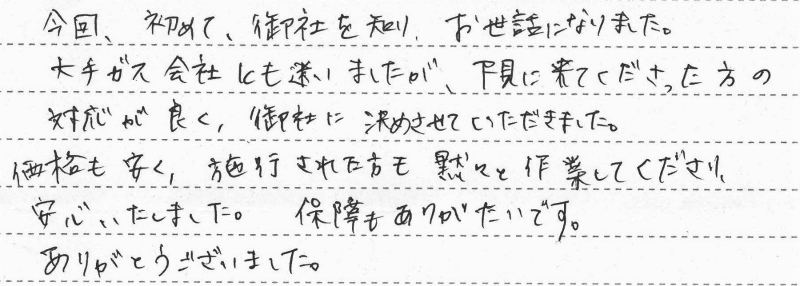 今回、初めて、御社を知り、お世話になりました。
大手ガス会社にも迷いましたが、下見に来てくださった方の
対応が良く、御社に決めさせていただきました。
価格も安く、施行された方も黙々と作業してくださり、
安心いたしました。 保障もありがたいです。
ありがとうございました。